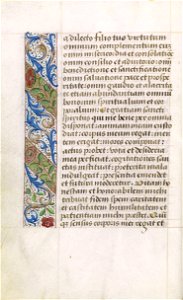 a dilecto filio tuo virtutum
omnium complementum cum
omni misericordia et consolatione
omni consilio et adiutorio: omni
benedictione et sanctificatione
omni salvatione pace et prosper
itate: omni gaudio et alacritate
etiam abundantiam omnium
bonorum spiritualium et cor
poralium. Et gratiam sancti
spiritus qui me bene per omnia
corpus meum regat:
erigat: mores componat:
actus probet: vota et desideria
mea perficiat: cogitationes sanc
tas instituat: preterita mala
indulgeat: presentia emendet et
futura moderetur: vitam
honestam et honorabilem
fidem spem caritatem
et castitatem humilitatem et
patientiam michi
que sensus corporis mei regat et